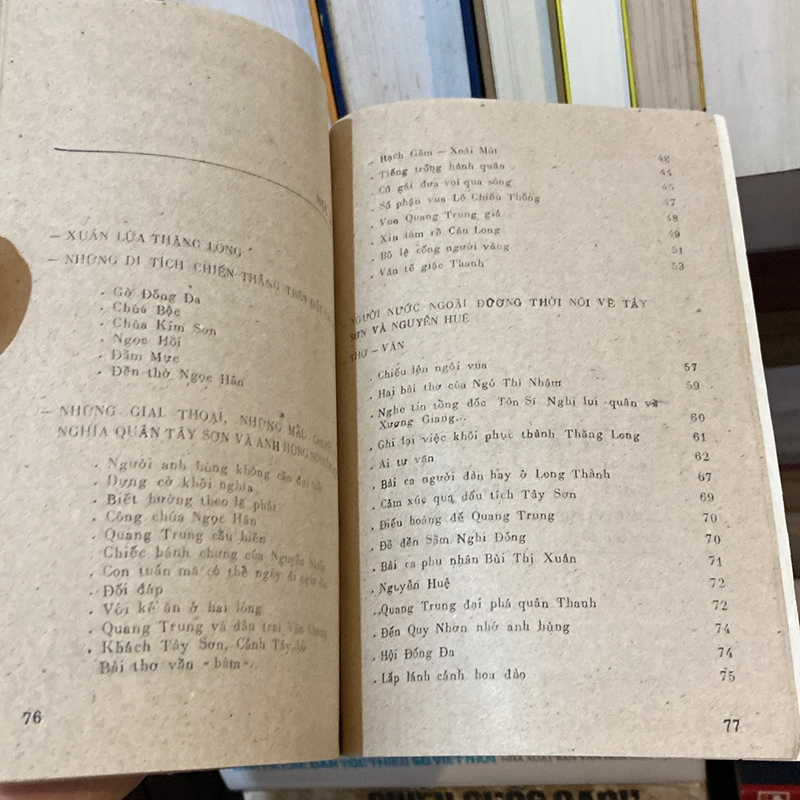 MỤC
— XUÂN LỬA THĂNG LONG
— NHỮNG DI TÍCH CHIẾN THẮNG TRÊN ĐẤT
. Gò Đống Đa
. Chùa Bộc
. Chùa Kim Sơn
. Ngọc Hồi
. Đầm Mực
. Đền thờ Ngọc Hân
— NHỮNG GIAI THOẠI, NHỮNG MẨU CHUYỆN
NGHĨA QUÂN TÂY SƠN VÀ ANH HÙNG
. Người anh hùng không cần đại
. Dựng cờ khởi nghĩa
. Biết hướng theo lẽ phải
. Công chúa Ngọc Hân
. Quang Trung cầu hiền
Chiếc bánh chưng của Nguyễn
. Con tuấn mã có thể ngày đi
. Đối đáp
. Với kẻ ăn ở hai lòng
. Quang Trung và dân trại Văn Chương
. Khách Tây Sơn, Cảnh Tây
Bài thơ vần «bàm»..
76
. Rạch Gầm — Xoài Mút 42
. Tiếng trống hành quân 44
. Cô gái đưa voi qua sông 45
. Số phận vua Lê Chiêu Thống 47
. Vua Quang Trung giả 48
. Xin làm rõ Càn Long 49
. Bỏ lệ cống người vàng 51
. Văn tế giặc Thanh 53
— NGƯỜI NƯỚC NGOÀI ĐƯƠNG THỜI NÓI VỀ TÂY
SƠN VÀ NGUYỄN HUỆ
— THƠ – VĂN
. Chiếu lên ngôi vua 57
. Hai bài thơ của Ngô Thì Nhậm 59
. Nghe tin tổng đốc Tôn Sĩ Nghị lui quân về
Xương Giang... 60
. Ghi lại việc khôi phục thành Thăng Long 61
. Ai tư vãn 62
. Bài ca người đàn hay ở Long Thành 67
. Cảm xúc qua dấu tích Tây Sơn 69
. Điếu hoàng đế Quang Trung 70
. Đề đền Sầm Nghi Đống 70
. Bài ca phu nhân Bùi Thị Xuân 71
. Nguyễn Huệ 72
. Quang Trung đại phá quân Thanh 72
. Đến Quy Nhơn nhớ anh hùng 74
. Hội Đống Đa 74
. Lấp lánh cánh hoa đào 75
77
DÂN TỘC THIỂU SỐ VIỆT NAM